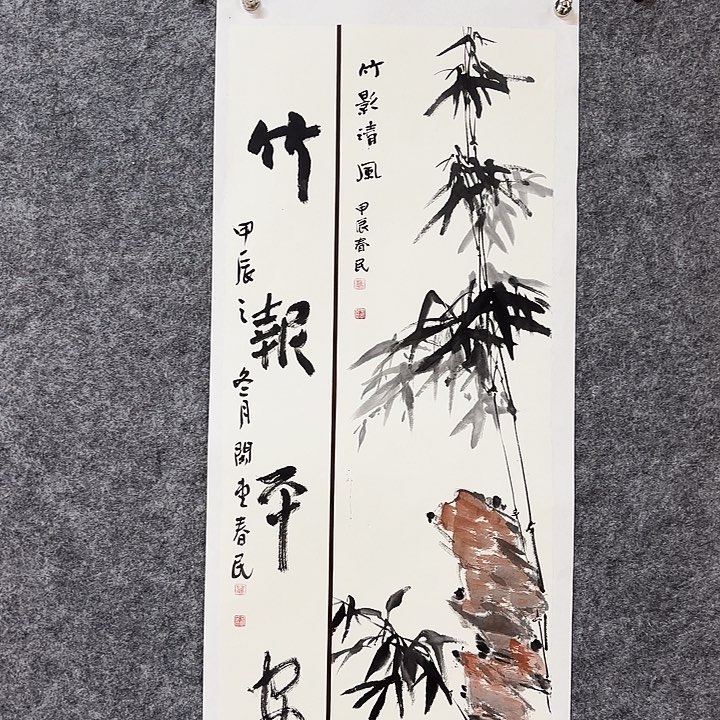 竹影清风
甲辰春民
竹報平安
甲辰之冬月閑堂春民